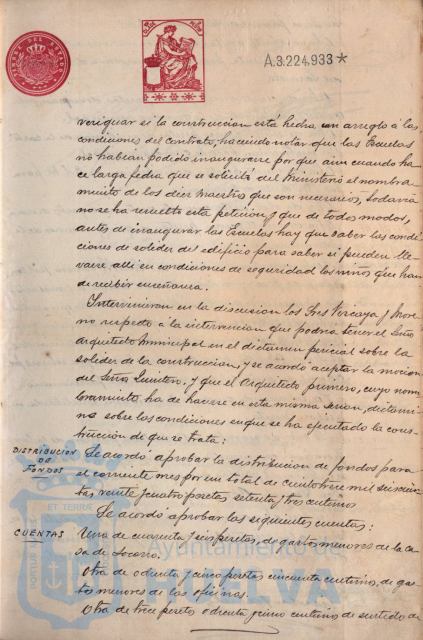 A.3.224.933 *
veriguar si la construccion está hecha con arreglo á las
condiciones del contrato, haciendo notar que las Escuelas
no habian podido inaugurarse por que aun cuando ha-
ce larga fecha que se solicitó del Ministerio el nombra-
miento de los diez Maestros que son necesarios, todavia
no se ha resuelto esta peticion y que de todos modos,
antes de inaugurar las Escuelas hay que saber las condi-
ciones de solidez del edificio para saber si pueden lle-
varse alli en condiciones de seguridad los niños que han
de recibir enseñanza.
Intervinieron en la discusion los Sres Vizcaya y More-
no respecto á la intervencion que podria tener el Señor
Arquitecto Municipal en el dictamen pericial sobre la
solidez de la construccion, y se acordó aceptar la mocion
del Señor Quintero, y que el Arquitecto primero, cuyo nom-
bramiento ha de hacerse en esta misma sesion, dictami-
ne sobre las condiciones en que se ha ejecutado la cons-
truccion de que se trata:
DISTRIBUCION DE FONDOS
Se acordó aprobar la distribucion de fondos para
el corriente mes por un total de ciento trece mil seiscien-
tas veinte y cuatro pesetas setenta y tres centimos
Se acordó aprobar las siguientes cuentas:
CUENTAS
Una de cuarenta y seis pesetas, de gastos menores de la Ca-
sa de Socorro.
Otra de ochenta y cinco pesetas cincuenta centimos, de gas-
tos menores de las oficinas.
Otra de trece pesetas ochenta y cinco centimos de surtido de
Ayuntamiento de
HUELVA